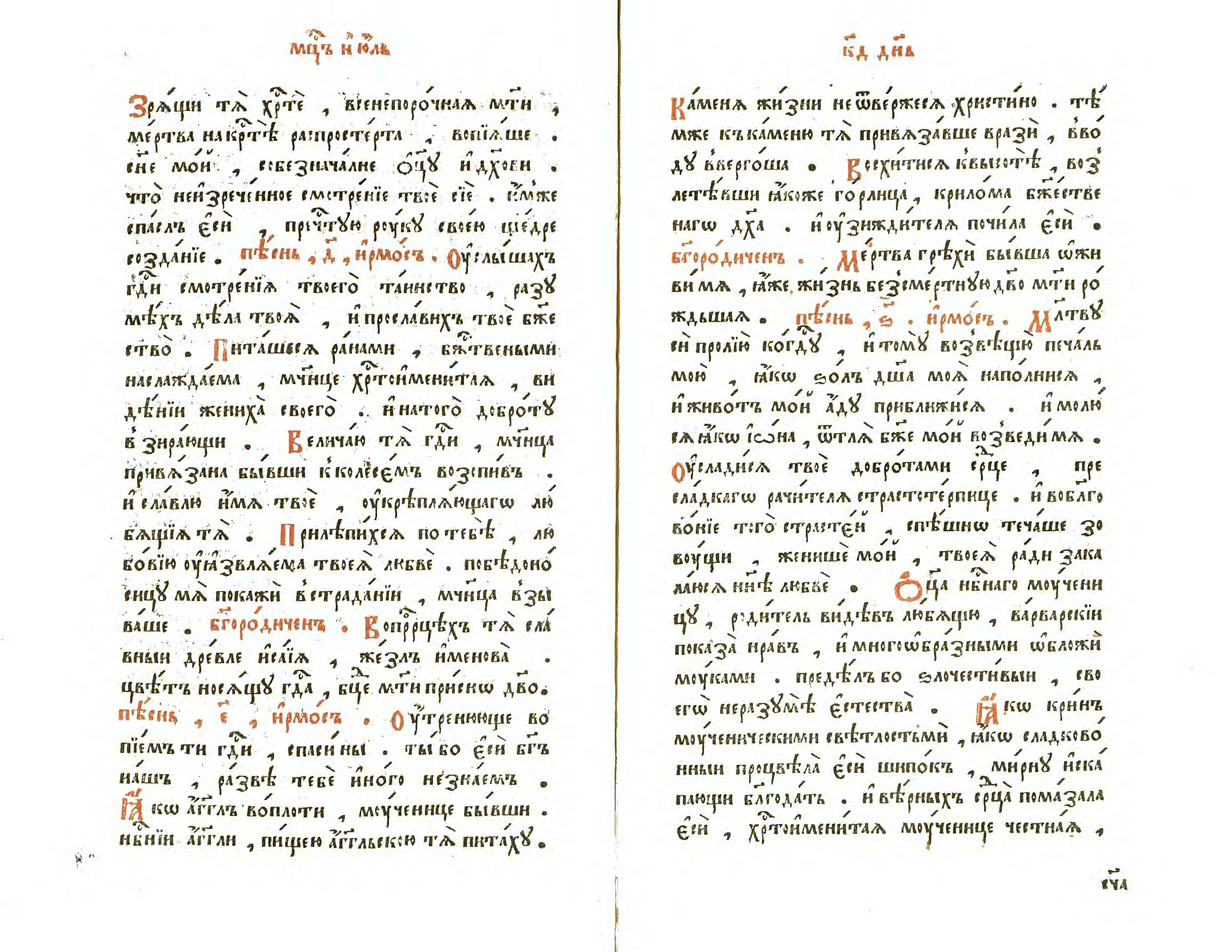 мц҃ъ и҆ ю҆́лѧ
Зрѧ́щи тѧ̀ хрⷭ҇тѐ , всенепоро́чнаѧ мт҃и ,
ме́ртва на крⷭ҇тѣ̀ распросте́рта , вопїѧ́ше .
сн҃е мо́й , собезнача́лне ѻ҆ц҃ꙋ̀ и҆ дх҃ови .
что̀ неи҆зрече́нное смотре́нїе твоѐ сїѐ . и҆́мже
спа́слъ є҆сѝ , пречⷭ҇тꙋю рꙋ́кꙋ своею̀ ще́дре
созда́нїе . пѣ́снь , д҃ , і҆рмо́съ . Оу҆слы́шахъ
гдⷭ҇и смотре́нїѧ твоего̀ та́инство , разꙋ
мѣ́хъ дѣла̀ твоѧ̀ , и҆ просла́вихъ твоѐ бж҃е
ство̀ . Пита́шесѧ ра́нами , бжⷭ҇твеными
наслажда́ема , мч҃нице хрⷭ҇тоимени́таѧ , ви
дѣ́нїи жениха̀ своего̀ . и҆ на того̀ добро́тꙋ
взира́ющи . Велича́ю тѧ̀ гдⷭ҇и , мч҃нца
привѧ́зана бы́вши к колесе́мъ воспи́въ .
и҆ сла́влю и҆́мѧ твоѐ , оу҆крѣплѧ́ющагѡ лю
бѧ́щїѧ тѧ̀ . Прилѣпи́хсѧ по тебѣ̀ , лю
бо́вїю оу҆ꙗ҆звлѧ́ема твоеѧ̀ любвѐ . побѣдоно́
сицꙋ мѧ̀ покажѝ в страда́нїи , мч҃нца взы
ва́ше . бг҃оро́диченъ . Во прⷪ҇рцѣхъ тѧ̀ сла́
вныи дре́вле и҆са́їѧ , же́злъ и҆менова̀ .
цвѣ́тъ носѧ́щꙋ гдⷭ҇а , бц҃е мт҃и при́снѡ дв҃о.
пѣ́снь , є҃ , и҆рмо́съ . Оу҆́тренююще во
пїе́мъ ти гдⷭ҇и , спаси́ ны . ты́ бо є҆сѝ бг҃ъ
на́шъ , ра́звѣ тебѐ и҆но́го не зна́емъ .
Ꙗ҆́кѡ а҆́гг҃лъ во плоти , моу́ченице бы́вши .
нбⷭ҇нїи а҆́гг҃ли , пи́щею а҆́гг҃льскою тѧ̀ пита́хꙋ.
к҃д дн҃ь
Ка́менѧ жи́зни не ѿве́ржесѧ христи́но . тѣ́
мже къ ка́меню тѧ̀ привѧза́вше вразѝ , в во́
дꙋ вверго́ша . Восхити́сѧ к высотѣ̀ , воз
летѣ́вши ꙗ҆́коже го́рлица , крило́ма бжⷭ҇тве
нагѡ дх҃а . и҆ оу҆ зижди́телѧ почи́ла є҆сѝ .
бг҃оро́диченъ . Ме́ртва грѣхѝ бы́вша ѡ҆жи
ви́ мѧ , ꙗ҆́же жи́знь безсме́ртнꙋю дв҃о мт҃и ро́
ждьшаѧ . пѣ́снь , ѕ҃ . и҆рмо́съ . Мл҃твꙋ
сѝ пролїю̀ ко гдⷭ҇ꙋ , и҆ томꙋ̀ возвѣщꙋ̀ печа́ль
мою̀ , ꙗ҆́кѡ ѕо́лъ дш҃а моѧ̀ напо́лнисѧ ,
и҆ живо́тъ мо́й а҆́дꙋ прибли́жисѧ . и҆ молю́
сѧ ꙗ҆́кѡ і҆ѡ́на , ѿ тлѧ̀ бж҃е мо́й возведи́ мѧ .
Оу҆слади́сѧ твоѐ добро́тами срⷣце , пре
сла́дкагѡ рачи́телѧ страстоте́рпице . и҆ во бл҃го
во́нїе того̀ страсте́й , спѣ́шнѡ теча́ше зо
вꙋ́щи , женишѐ мо́й , твоеѧ̀ ра́ди зака
ла́юсѧ нн҃ѣ любвѐ . Ѻ҆ц҃а нбⷭ҇наго моу́чени
цꙋ , роди́тель ви́дѣвъ лю́бѧщꙋю , ва́рварскїи
показа̀ нра́въ , и҆ многоѡ҆бра́зными ѡ҆бложѝ
моу́ками . предѣ́лъ бо ѕлочести́выи , сво
егѡ̀ не разꙋмѣ̀ є҆стества̀ . Ꙗ҆́кѡ кри́нъ
моу́ченическими свѣ́тлостьми , ꙗ҆́кѡ сладково́
нныи процвѣла̀ є҆сѝ шипо́къ , ми́рнꙋ и҆ска
па́ющи бл҃года́ть . и҆ вѣ́рныхъ срⷣца̀ пома́зала
є҆сѝ , хрⷭ҇тоимени́таѧ моу́ченице честна́ѧ ,
сч҃а